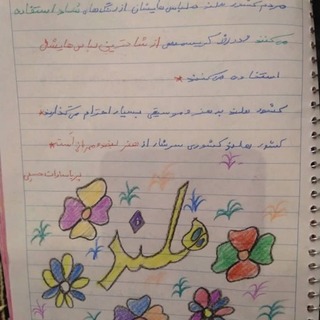 مردم کشور هلند در لباس هایشان از رنگ های شاد استفاده
می کنند در روز کریسمس از شادترین لباس هایشان
استفاده می کنند
کشور هلند به هنر و موسیقی بسیار احترام می گذارد
کشور هلند کشوری سرشار از هنر است
هلند